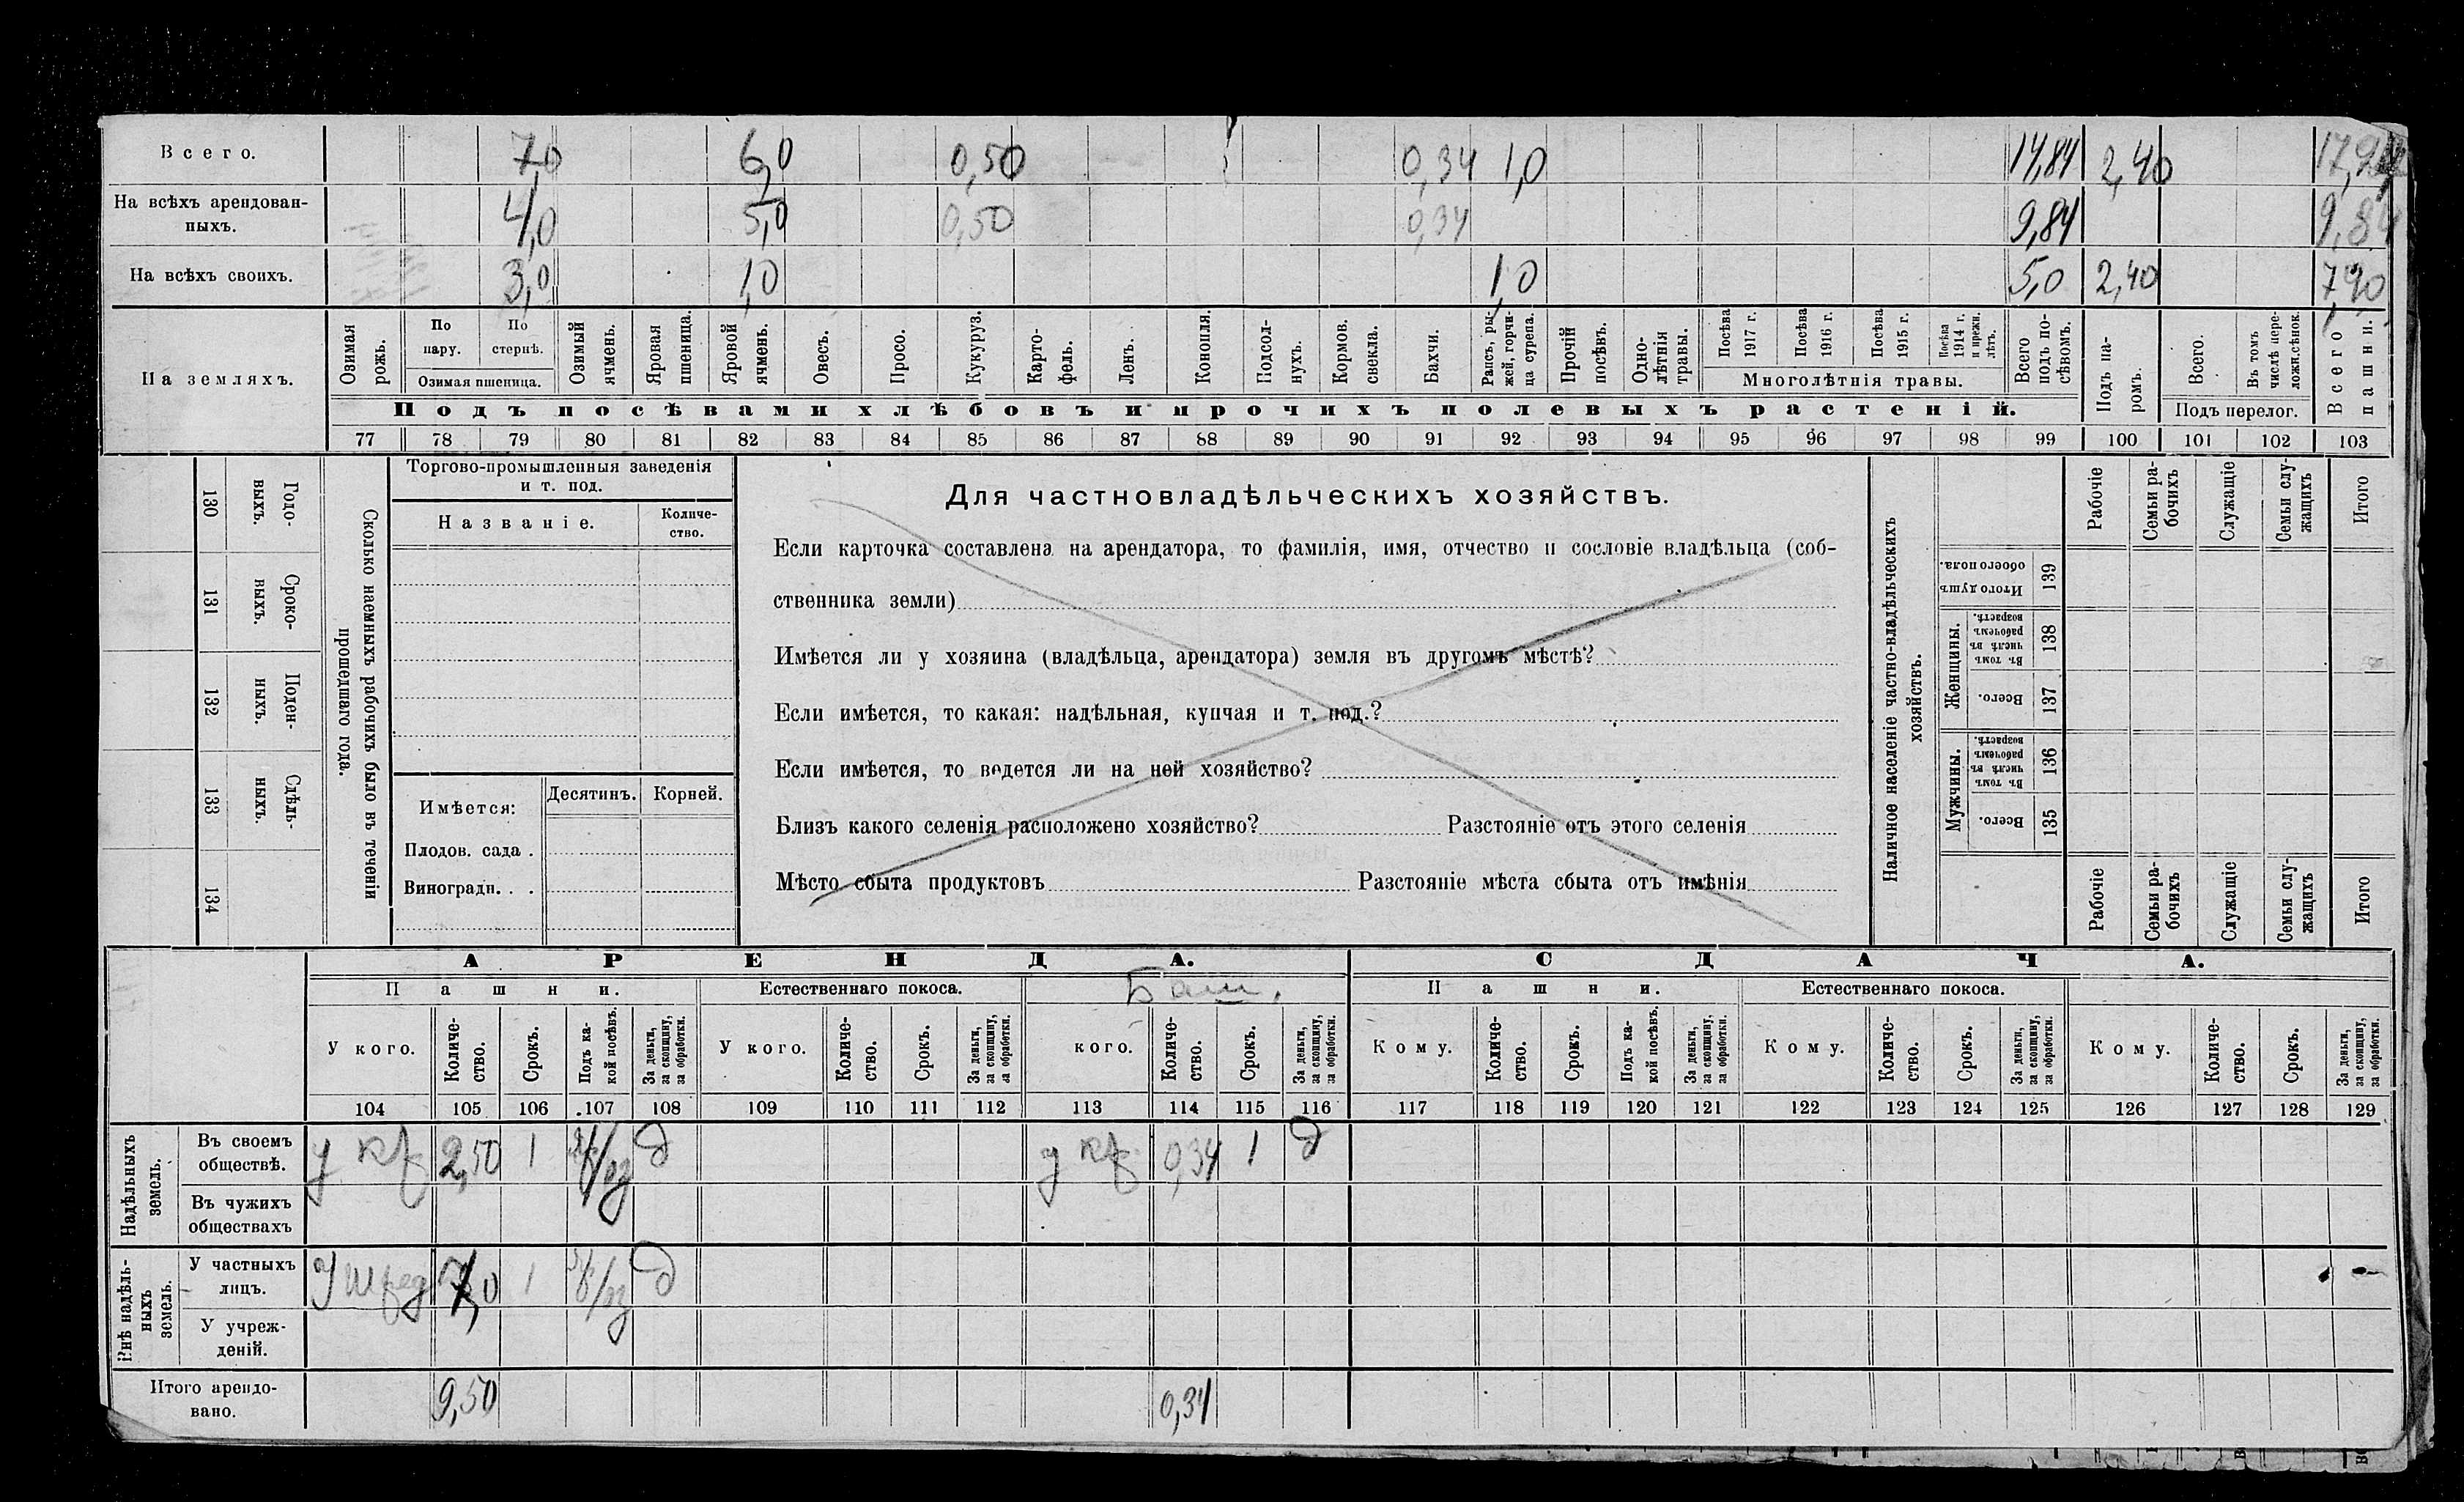 Всего. 7,0 6,0 0,50 0,34 1,0 14,84 2,40
На всѣхъ арендован-
ныхъ. 4,0 5,0 0,50 0,34 9,84 9,84
На всѣхъ своихъ. 3,0 1,0 1,0 5,0 2,40
На земляхъ.
Озимая рожь.
По пару.
По стернѣ.
Озимая пшеница.
Озимый ячмень.
Яровая пшеница.
Яровой ячмень.
Овесъ.
Просо.
Кукуруз.
Карто-
фель.
Ленъ.
Конопля.
Подсол-
нухъ.
Кормов. свекла.
Бахчи.
Рапсъ, ры-
жей, горчи-
ца сурепа.
Прочій посѣвъ.
Одно-
лѣтнія травы.
Посѣва 1917 г.
Посѣва 1916 г.
Посѣва 1915 г.
Посѣва 1914 г. и прежн. лѣтъ.
Многолѣтнія травы.
Всего подъ по-
сѣвомъ.
Подъ па-
ромъ.
Всего.
Въ томъ числѣ пере-
ложн.сѣнок.
Подъ перелог.
Всего пашни.
Подъ посѣвами хлѣбовъ и прочихъ полевыхъ растеній.
77 78 79 80 81 82 83 84 85 86 87 88 89 90 91 92 93 94 95 96 97 98 99 100 101 102 103
130 Годо-
выхъ.
131 Сроко-
ныхъ.
132 Поден-
ныхъ.
133 Сдѣль-
ныхъ.
134
Сколько наемныхъ рабочихъ было въ теченіи
прошедшаго года.
Торгово-промышленныя заведенія
и т. под.
Названіе.
Количе-
ство.
Имѣется: Десятинъ. Корней.
Плодов. сада .
Виноградн. . .
Для частновладѣльческихъ хозяйствъ.
Если карточка составлена на арендатора, то фамилія, имя, отчество и сословіе владѣльца (соб-
ственника земли)
Имѣется ли у хозяина (владѣльца, арендатора) земля въ другомъ мѣстѣ?
Если имѣется, то какая: надѣльная, купчая и т. под.?
Если имѣется, то ведется ли на ней хозяйство?
Близъ какого селенія расположено хозяйство? Разстояніе отъ этого селенія
Мѣсто сбыта продуктовъ Разстояніе мѣста сбыта отъ имѣнія
Наличное населеніе частно-владѣльческихъ
хозяйствъ.
Рабочіе
Семьи ра-
бочихъ
Служащіе
Семьи слу-
жащихъ
Итого
Итого душъ обоего пола. 139
Женщины.
Въ томъ числѣ въ рабочемъ возрастѣ. 138
Всего. 137
Мужчины.
Въ томъ числѣ въ рабочемъ возрастѣ. 136
Всего. 135
Рабочіе
Семьи ра-
бочихъ
Служащіе
Семьи слу-
жащихъ
Итого
АРЕНДА. СДАЧА.
Пашни. Естественнаго покоса. Пашни. Естественнаго покоса.
У кого.
Количе-
ство.
Срокъ.
Подъ ка-
кой посѣвъ.
За деньги,
за скопщину,
за обработки.
У кого.
Количе-
ство.
Срокъ.
За деньги,
за скопщину,
за обработки.
кого.
Количе-
ство.
Срокъ.
За деньги,
за скопщину,
за обработки.
Кому.
Количе-
ство.
Срокъ.
Подъ ка-
кой посѣвъ.
За деньги,
за скопщину,
за обработки.
Кому.
Количе-
ство.
Срокъ.
За деньги,
за скопщину,
за обработки.
Кому.
Количе-
ство.
Срокъ.
За деньги,
за скопщину,
за обработки.
104 105 106 107 108 109 110 111 112 113 114 115 116 117 118 119 120 121 122 123 124 125 126 127 128 129
Надѣльныхъ
земель.
Въ своемъ
обществѣ. у 2,50 1 д у 0,34 1 д
Въ чужихъ
обществахъ
Внѣ надѣль-
ныхъ
земель.
У частныхъ
лицъ. У 7,0 1 д
У учреж-
деній.
Итого арендо-
вано. 9,50 0,34